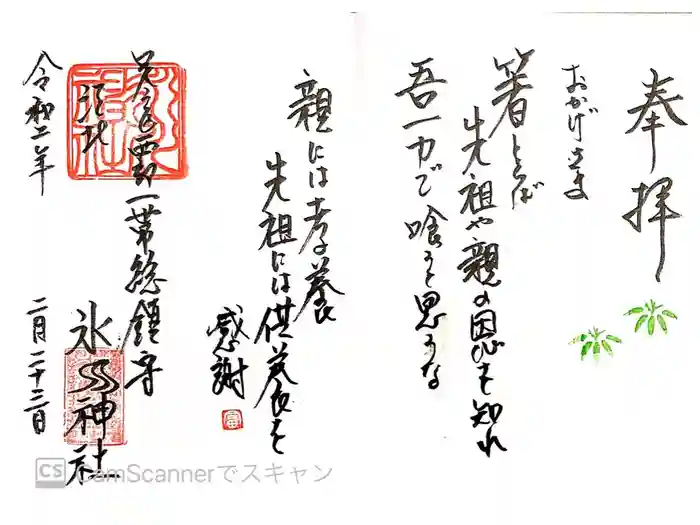 奉拝
おかげさま
箸とらば
先祖や親の恩を知れ
吾一力で喰うと思うな
親には孝養
先祖には供養を
感謝
一帯総鎮守
氷川神社
令和二年
二月二十三日
CS CamScannerでスキャン